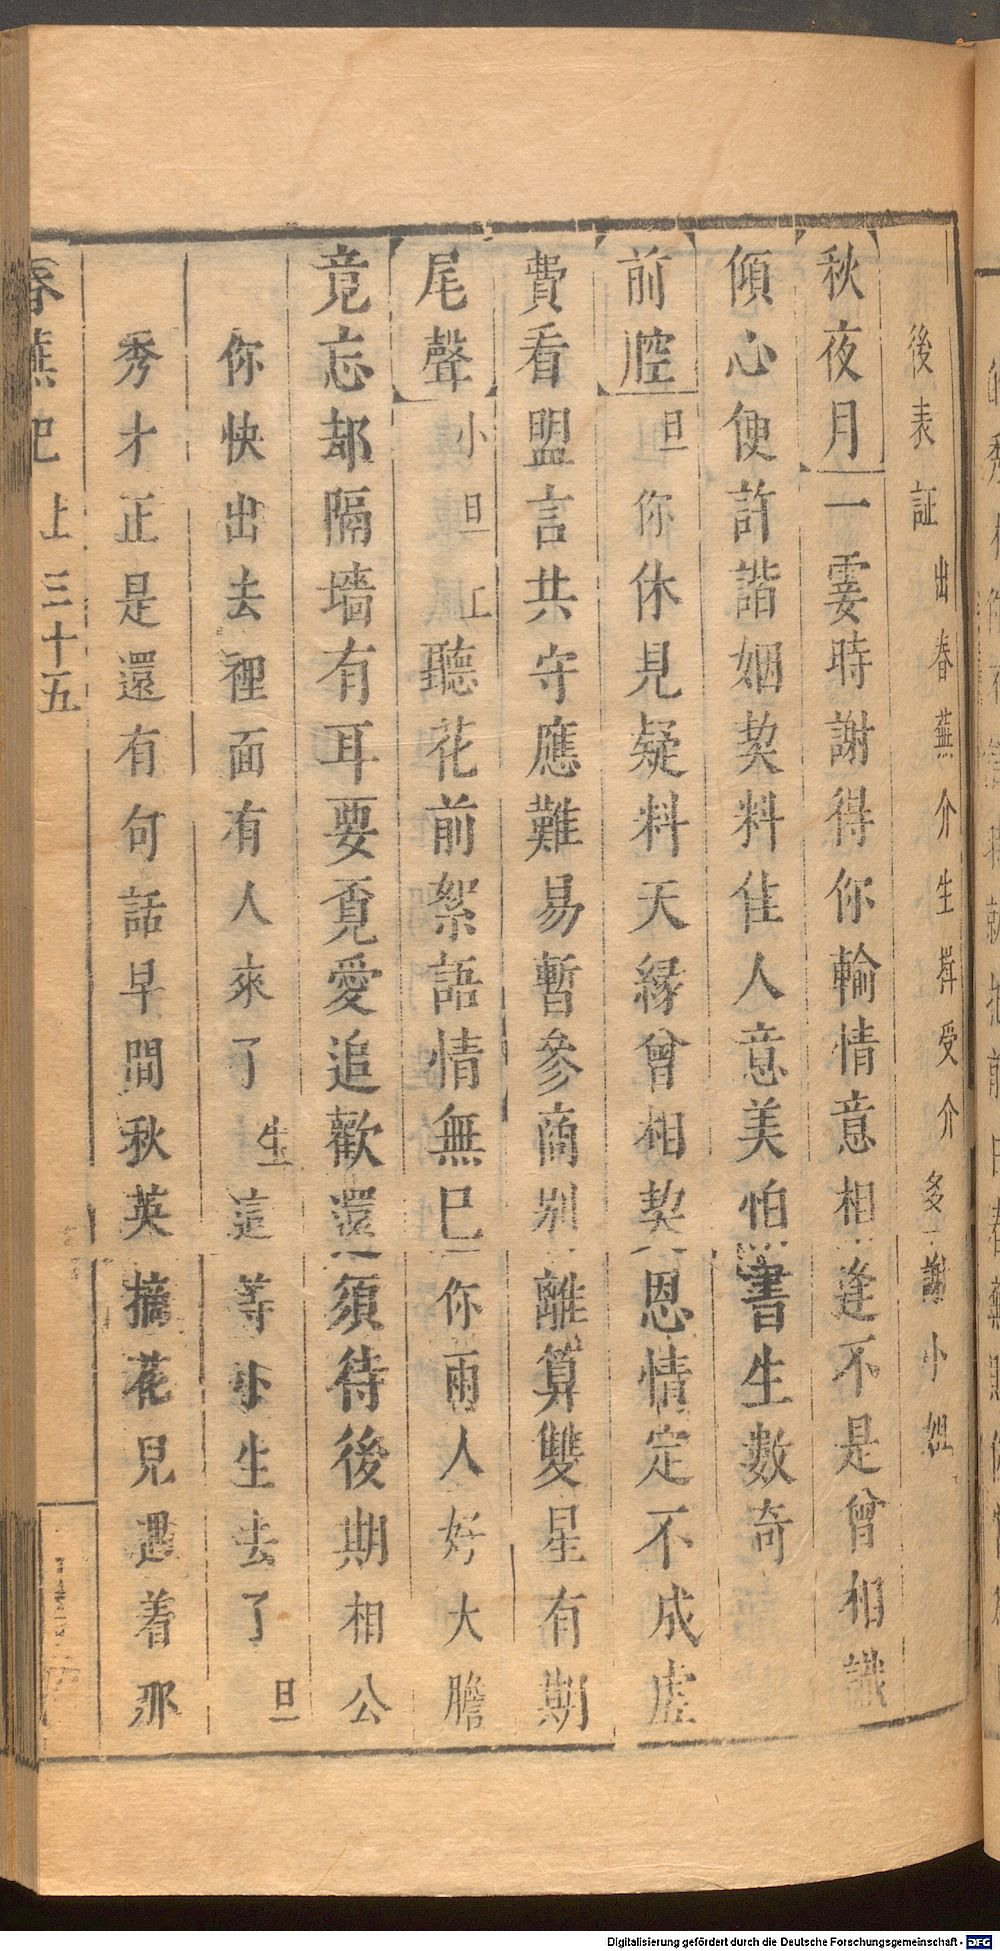 後表証出春蕪介生揖受介多謝小姐
秋夜月一霎時謝得你輸情意相逢不是曾相識
傾心便許諧姻契料佳人意美怕書生數奇
前腔旦你休見疑料天緣曾相契恩情定不成虛
費看盟言共守應難易暫參商別離算雙星有期
尾聲小旦上聽花前絮語情無巳你兩人好大膽
竟忘却隔墻有耳要覓愛追歡還須待後期相公
你快出去裡面有人來了生這等小生去了旦
秀才正是還有句話早間秋英摘花兒遇着那
春蕪記 上 三十五
Digitalisierung gefördert durch die Deutsche Forschungsgemeinschaft - DFG